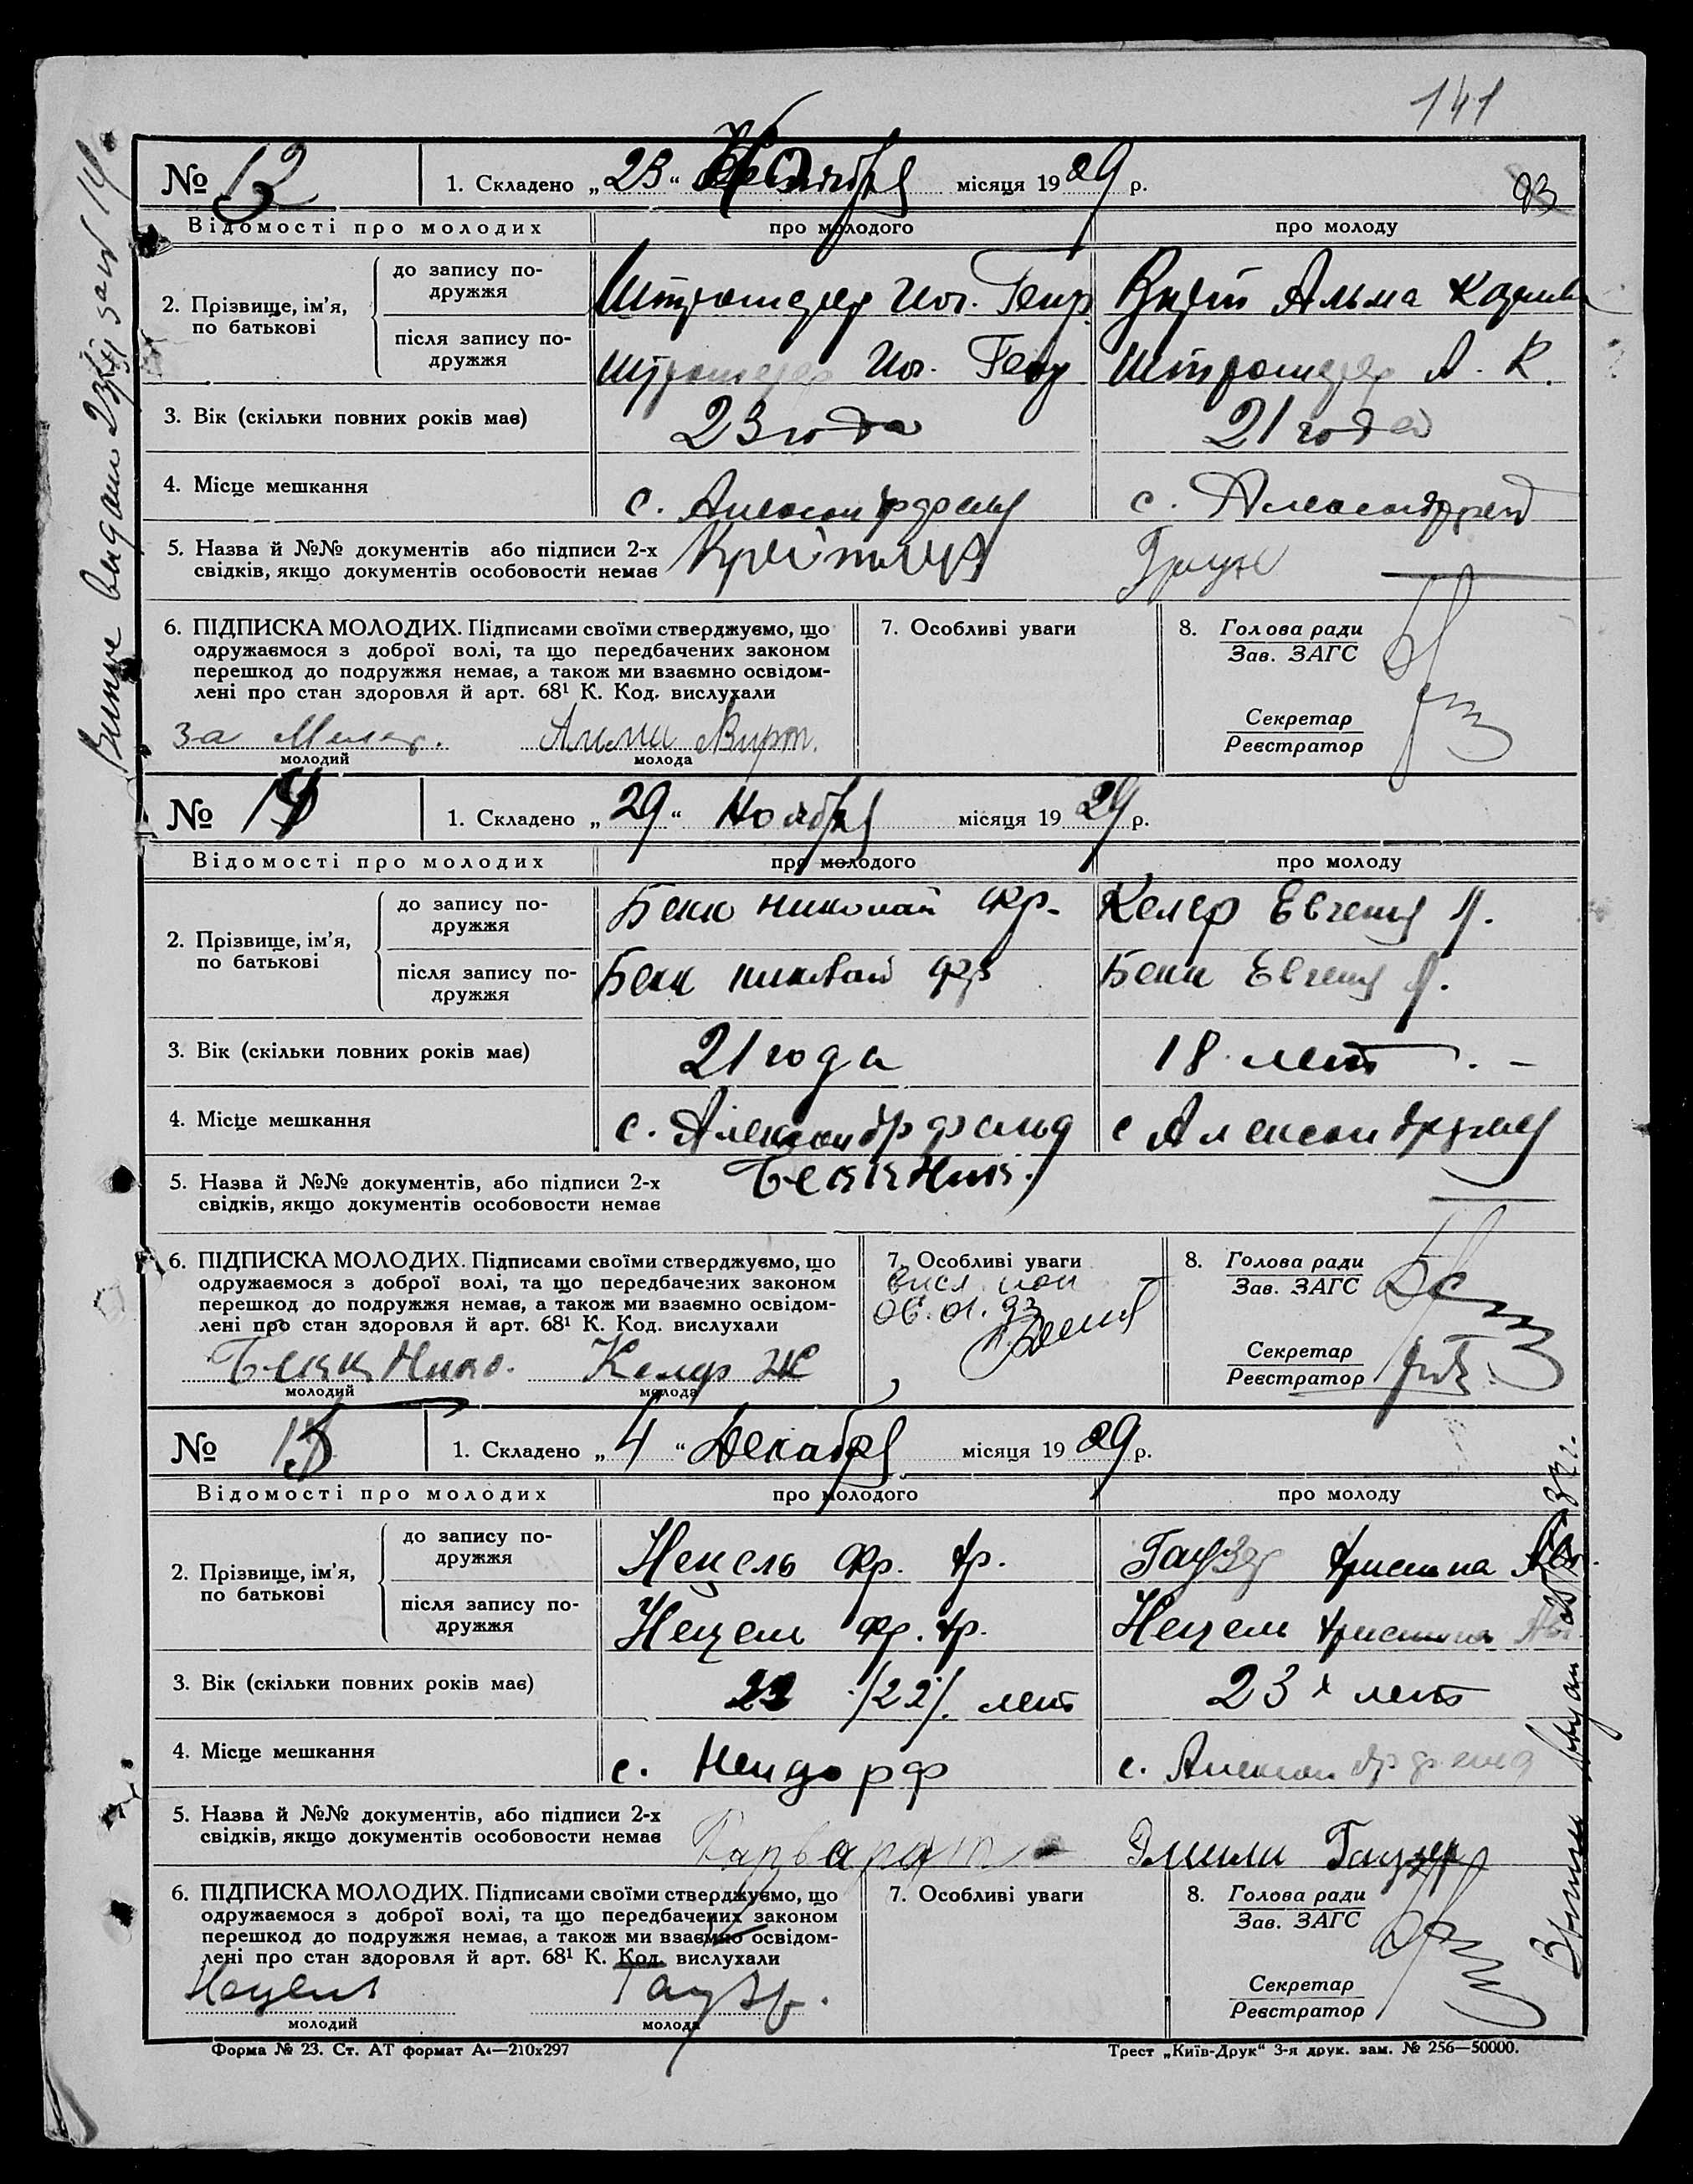 141
93
№ 12 1. Складено „23“ Ноября місяця 1929 р.
Відомості про молодих про молодого про молоду
2. Прізвище, ім’я, по батькові
до запису подружжя Генр. Альма
після запису подружжя Ио. Генр А. К.
3. Вік (скільки повних років має) 23 года 21 года
4. Місце мешкання с. с.
5. Назва й №№ документів або підписи 2-х
свідків, якщо документів особовости немає
6. ПІДПИСКА МОЛОДИХ. Підписами своїми стверджуємо, що
одружаємося з доброї волі, та що передбачених законом
перешкод до подружжя немає, а також ми взаємно освідом-
лені про стан здоровля й арт. 68¹ К. Код. вислухали
за Альма Вирт.
молодий молода
7. Особливі уваги
8. Голова ради
Зав. ЗАГС
Секретар
Реєстратор
№ 14 1. Складено „29“ Ноября місяця 1929 р.
Відомості про молодих про молодого про молоду
2. Прізвище, ім’я, по батькові
до запису подружжя Бекк Николай Фр. Келер Евгения Я.
після запису подружжя Бекк Николай Фр Бекк Евгения Я.
3. Вік (скільки повних років має) 21 года 18 лет
4. Місце мешкання с. Александрфельд с Александрфельд
5. Назва й №№ документів, або підписи 2-х
свідків, якщо документів особовости немає
Бекк Ник.
6. ПІДПИСКА МОЛОДИХ. Підписами своїми стверджуємо, що
одружаємося з доброї волі, та що передбачених законом
перешкод до подружжя немає, а також ми взаємно освідом-
лені про стан здоровля й арт. 68¹ К. Код. вислухали
Бекк Нико. Келер
молодий молода
7. Особливі уваги
8. Голова ради
Зав. ЗАГС
Секретар
Реєстратор
№ 15 1. Складено „4“ Декабря місяця 1929 р.
Відомості про молодих про молодого про молоду
2. Прізвище, ім’я, по батькові
до запису подружжя Нецель Фр. Хр. Гаузер Христина
після запису подружжя Нецель Фр. Хр. Нецель Христина
3. Вік (скільки повних років має) 22 /22/. лет 23х лет
4. Місце мешкання с. Нейдорф с. Александрфельд
5. Назва й №№ документів, або підписи 2-х
свідків, якщо документів особовости немає
Эмили Гаузер
6. ПІДПИСКА МОЛОДИХ. Підписами своїми стверджуємо, що
одружаємося з доброї волі, та що передбачених законом
перешкод до подружжя немає, а також ми взаємно освідом-
лені про стан здоровля й арт. 68¹ К. Код. вислухали
Нецель Гаузер.
молодий молода
7. Особливі уваги
8. Голова ради
Зав. ЗАГС
Секретар
Реєстратор
Форма № 23. Ст. АТ формат А₄—210х297
Трест „Київ-Друк“ 3-я друк. зам. № 256—50000.